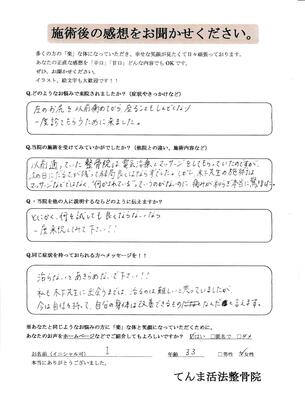 施術後の感想をお聞かせください。
多くの方の「楽」な体になっていただき、幸せな笑顔が見たくて日々頑張っております。
あなたの正直な感想を「辛口」「甘口」どんな内容でもOKです。
ぜひ、お聞かせください。
イラスト、絵文字も大歓迎です!!
Q.どのようなお悩みで来院されましたか?(症状やきっかけなど)
左のお尻を以前痛めてから、座ることもしんどくなり
一度診てもらうために来ました。
Q.当院の施術を受けてみていかがでしたか?(他院との違い、施術内容など)
以前通っていた整骨院は電気治療とマッサージをしてもらっていたのですが、
マッサージなどではなく、"何かされている"というのがないのに、痛みがやわらぎ本当に驚きました。
Q・当院を他の人に説明するならどのように伝えますか?
とにかく、何を試しても良くならないなら
一度来院してみて下さい!!
Q.同じ症状を持っておられる方へメッセージを!!
治らないとあきらめないで下さい!!
私も木下先生に出会うまでは、治るのは難しいと思っていましたが、
今は自信を持って、自分の身体は改善できるものなんだと言えます。
※あなたと同じようなお悩みの方に「楽」な体と笑顔になっていただくために、
あなたのお声をホームページなどでご紹介してもよろしいですか? ☑はい □匿名で □ダメ
お名前(イニシャル可) I 年齢 33 □男性 ☑女性
本当にありがとうございました。
てんま活法整骨院